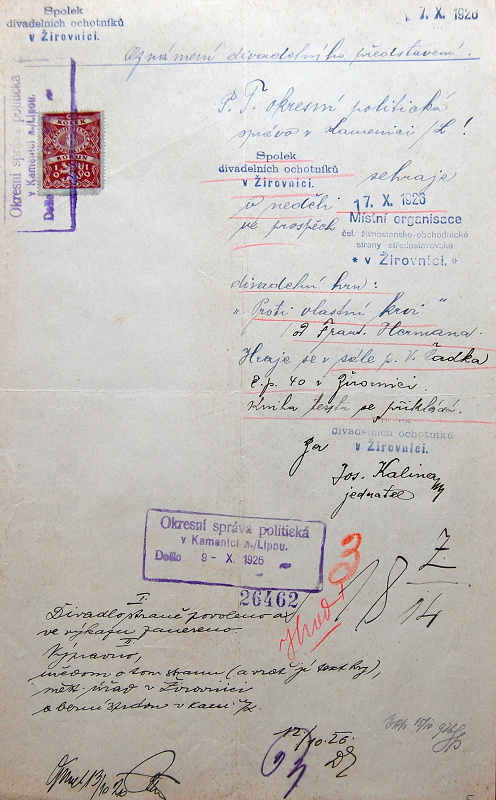 Spolek
divadelních ochotníků
v Žirovnici.
7. X. 1926
Oznámení divadelního představení.
Okresní správa politická
v Kamenici n./Lipou.
Došlo
KOLEK
P. T. okresní politická
správo v Kamenici /L!
Spolek
divadelních ochotníků
v Žirovnici.
sehraje
v neděli
17. X. 1926
ve prospěch
Místní organisace
čsl. živnostensko-obchodnické
strany středostavovské
* v Žirovnici. *
divadelní hru:
"Proti vlastní krvi"
od Frant. Hermana.
Hraje se v sále p. V. Řádka
č. p. 40 v Žirovnici.
Kniha textu se přikládá.
divadelních ochotníků
v Žirovnici.
Za
Jos. Kalina
jednatel
Okresní správa politická
v Kamenici n./Lipou.
Došlo 9 - X. 1926
26462
18
14
I.
povoleno a
ve výkazu
II.
Výpravno,
(a vrať jí text hry),
měst. úřad v Žirovnici
12./10. 26.
13/10